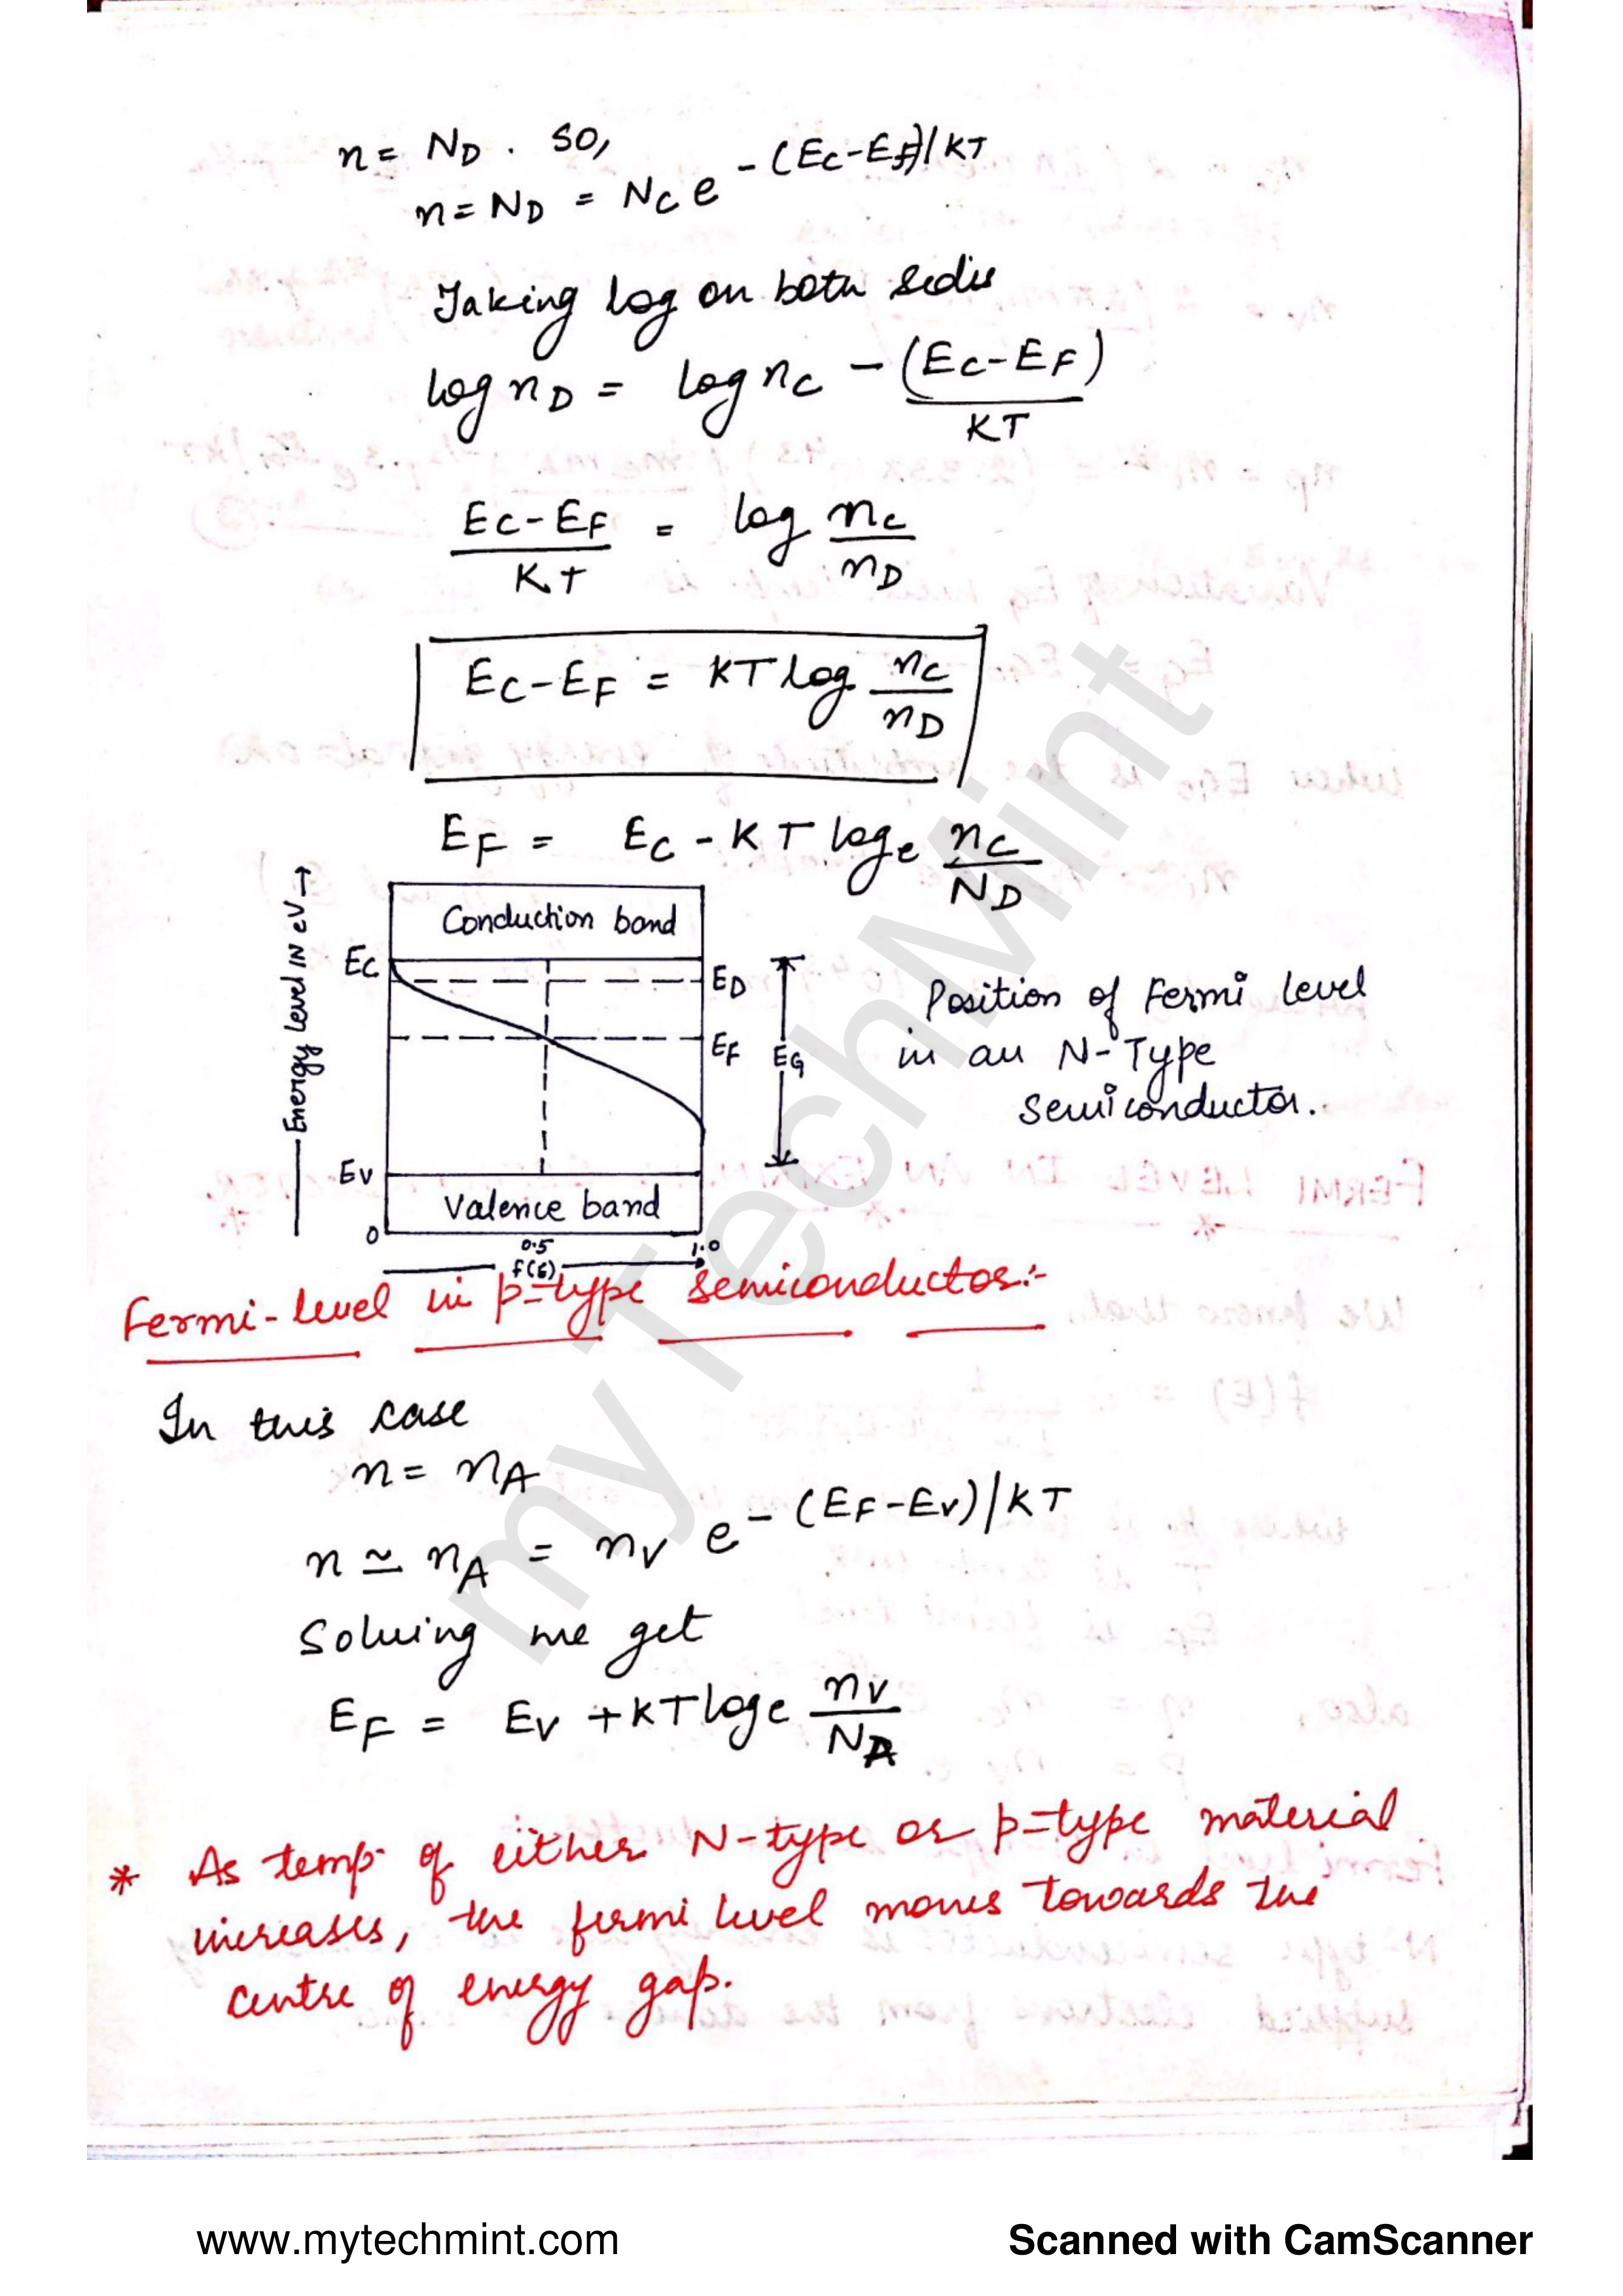 n = ND . so,
n = ND = NC e - (EC-EF)/KT
Taking log on both sides
log nD = log nC - (EC-EF)/KT
EC-EF/KT = log nC/nD
EC-EF = KT log nC/nD
EF = EC - KT loge nC/ND
Energy level IN eV →
Conduction band
EC
ED
EF
EG
EV
Valence band
0
0.5
1.0
f(E)
Position of Fermi level
in an N-Type
semiconductor.
Fermi-level in p-type semiconductor:-
In this case
n = nA
n ≃ nA = nV e - (EF-EV)/KT
Solving we get
EF = EV + KT loge nV/NA
* As temp. of either N-type or p-type material
increases, the fermi level moves towards the
centre of energy gap.
myTechMint
www.mytechmint.com
Scanned with CamScanner